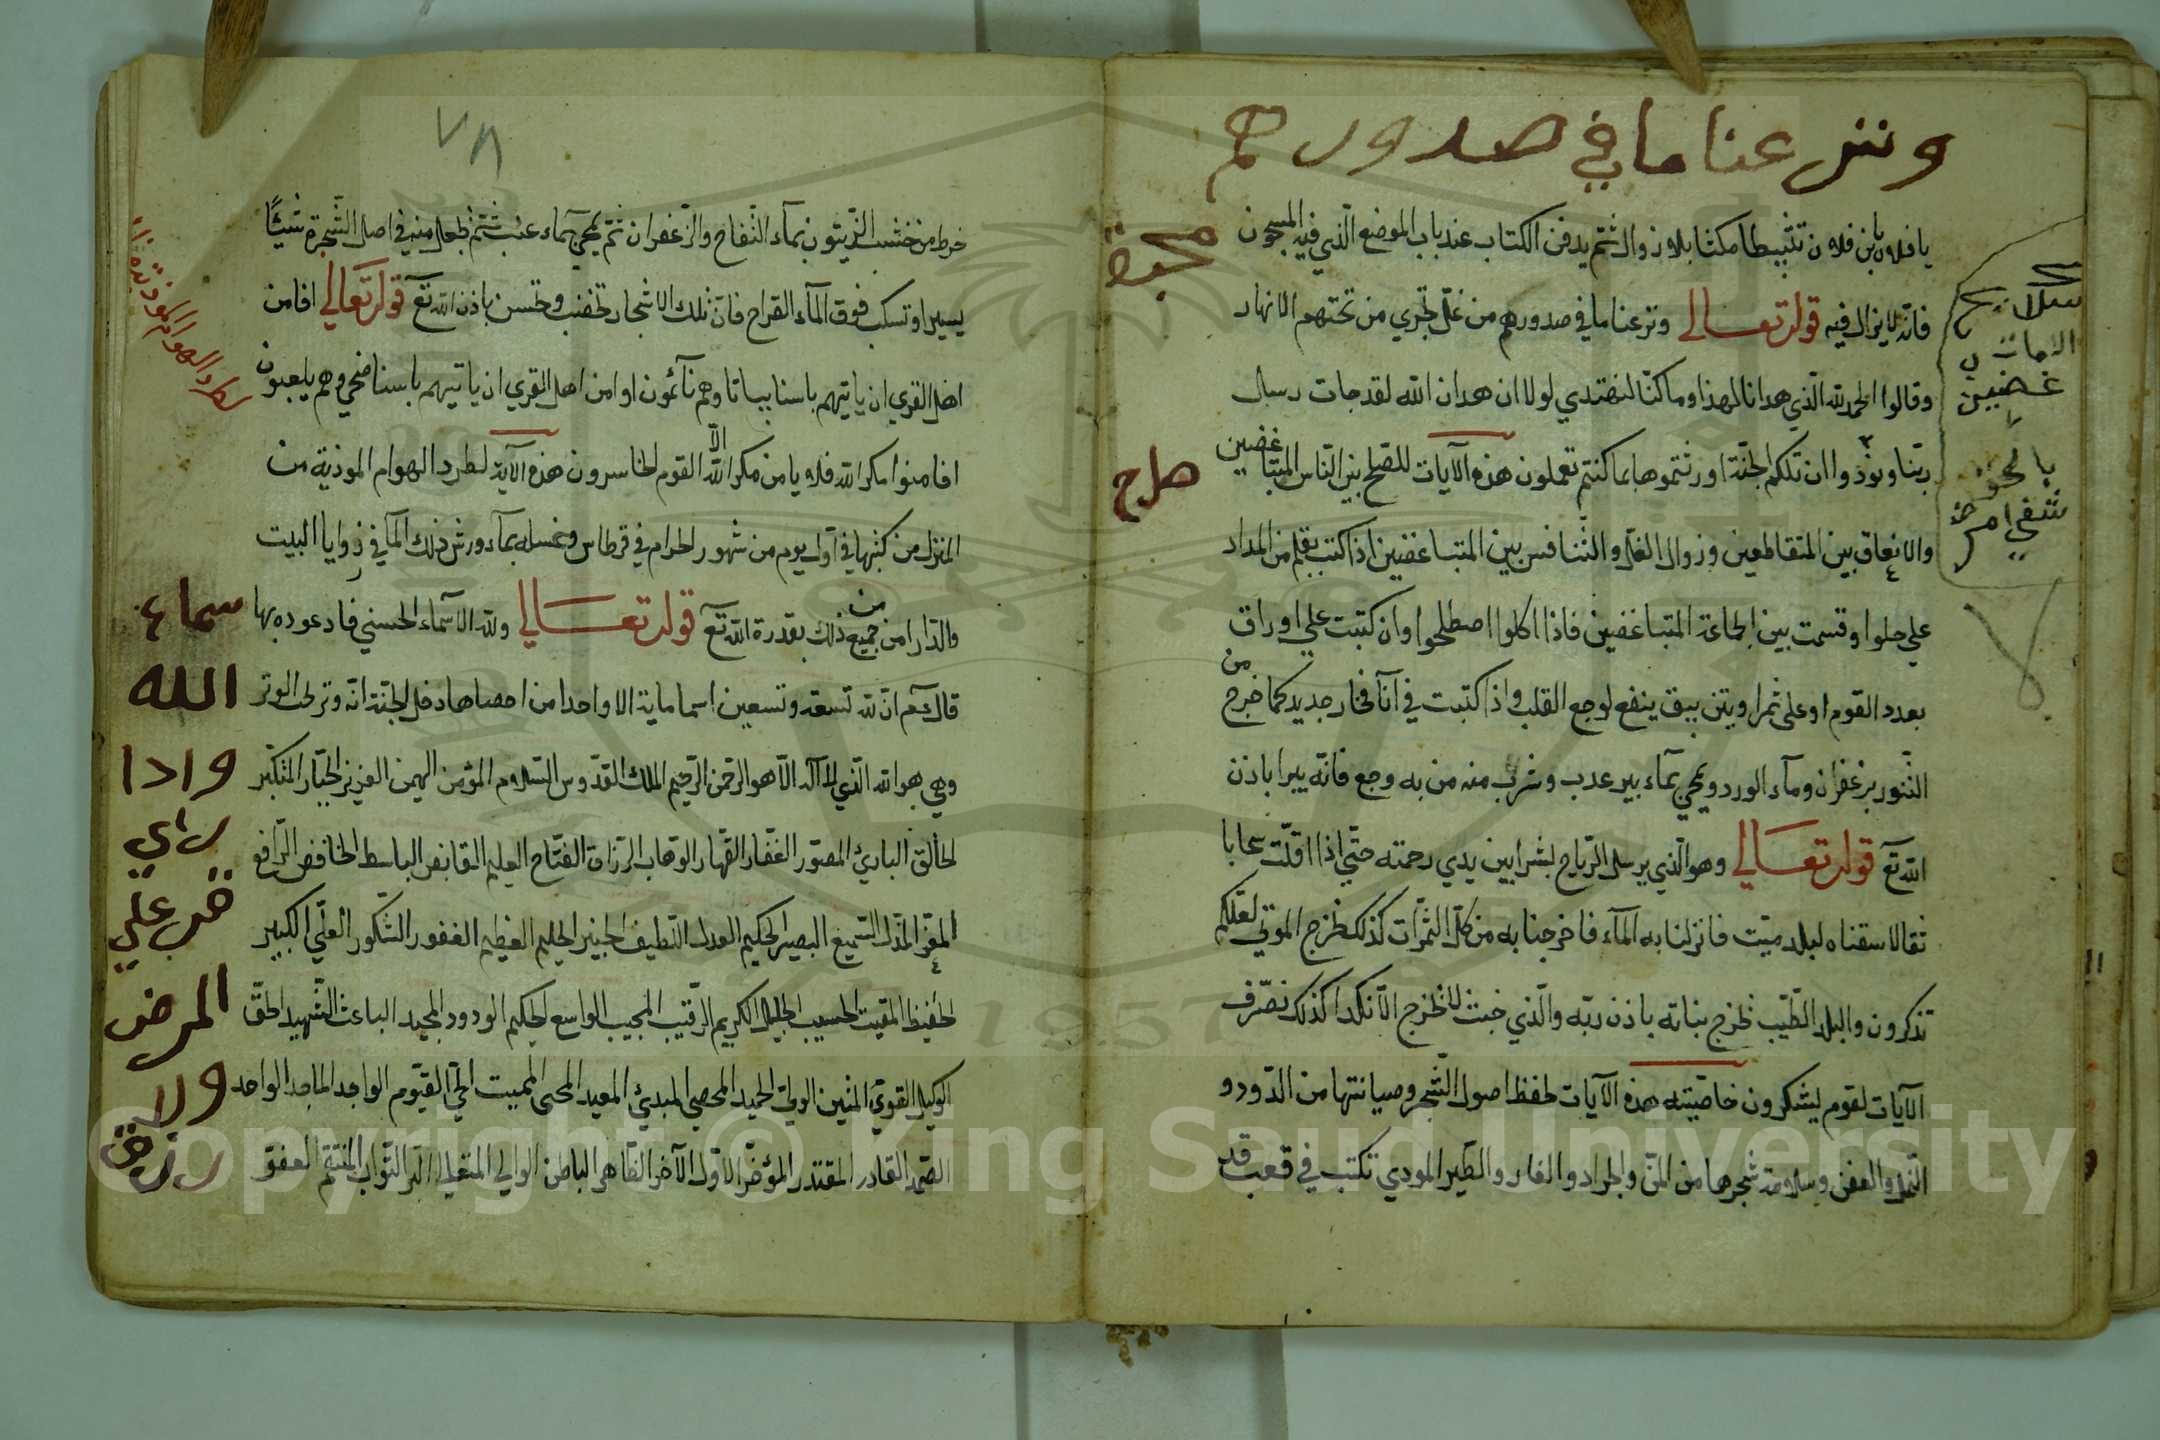 ونزعنا ما في صدورهم
يا فلان بن فلان تثبيطا مكثا بلا زوال ثم يدفن الكتاب عند باب الموضع الذي فيه المسجون
محبة
فانه لا يزال فيه قوله تعالى ونزعنا ما في صدورهم من غل تجري من تحتهم الانهار
وقالوا الحمد لله الذي هدانا لهذا وما كنا لنهتدي لولا ان هدان الله لقد جات رسل
ربنا ونودوا ان تلكم الجنة اورثتموها بما كنتم تعملون هذه الآيات للصلح بين الناس المتباغضين
صلح
والايقاع بين المتقاطعين وزوال الغل والتنافس بين المتباغضين اذا كتب بقلم من المداد
على حلوا وقسمت بين الجماعة المتباغضين فاذا اكلوا اصطلحوا وان كتبت علي اوراق
بعدد القوم او على ثمر او تين يبق ينفع لوجع القلب واذا كتبت في انآ فخار جديد كما خرج من
التنور بزعفران ومآء الورد ويمحي بمآء بير عدب وشرب منه من به وجع فانه يبرا باذن
الله تع قوله تعالى وهو الذي يرسل الرياح بشرا بين يدي رحمته حتى اذا اقلت سحابا
ثقالا سقناه لبلد ميت فانزلنا به المآء فاخرجنا به من كل الثمرات كذلك نخرج الموتى لعلكم
تذكرون والبلد الطيب يخرج نباته باذن ربه والذي خبث لا يخرج الا نكدا كذلك نصرف
الآيات لقوم يشكرون خاصيته هذه الآيات لحفظ اصول الشجر وصيانتها من الدود و
النمل والعفن وسلامة شجرها من المن والجراد والفار والطير المودي تكتب في قعب قد
٧٨
خرط من خشب الزيتون بمآء التفاح والزعفران ثم يمحي بمآء عنب ثم يجعل منه في اصل الشجرة شيئًا
يسيرا وتسكب فوقه المآء القراح فان تلك الاشجار تخضب وتحسن باذن الله تع قوله تعالى افامن
اهل القري ان ياتيهم باسنا بياتا وهم نآئمون او امن اهل القري ان ياتيهم باسنا ضحي وهم يلعبون
افامنوا مكر الله فلا يامن مكر الله الا القوم الخاسرون هذه الآية لطرد الهوام الموذية من
المنزل من كتبها في اول يوم من شهور الحرام في قرطاس وغسله بمآء ورش ذلك المآ في زوايا البيت
والدار امن من جميع ذلك بقدرة الله تع قوله تعالى ولله الاسمآء الحسني فادعوه بها
قال عم ان لله تسعة وتسعين اسما ماية الا واحدا من احصاها دخل الجنة انه وتر يحب الوتر
وهي هو الله الذي لا اله الا هو الرحمن الرحيم الملك القدوس السلام المؤمن المهيمن العزيز الجبار المتكبر
الخالق البارئ المصور الغفار القهار الوهاب الرزاق الفتاح العليم القابض الباسط الخافض الرافع
المعز المذل السميع البصير الحكيم العدل اللطيف الخبير الحليم العظيم الغفور الشكور العلي الكبير
الحفيظ المقيت الحسيب الجليل الكريم الرقيب المجيب الواسع الحكيم الودود المجيد الباعث الشهيد الحق
الوكيل القوي المتين الولي الحميد المحصي المبدئ المعيد المحى المميت الحي القيوم الواجد الماجد الواحد
الصمد القادر المقتدر المؤخر الاول الآخر الظاهر الباطن الوالي المتعال البر التواب المنتقم العفو
اسماء
الله
المرض
Copyright © King Saud University
1957